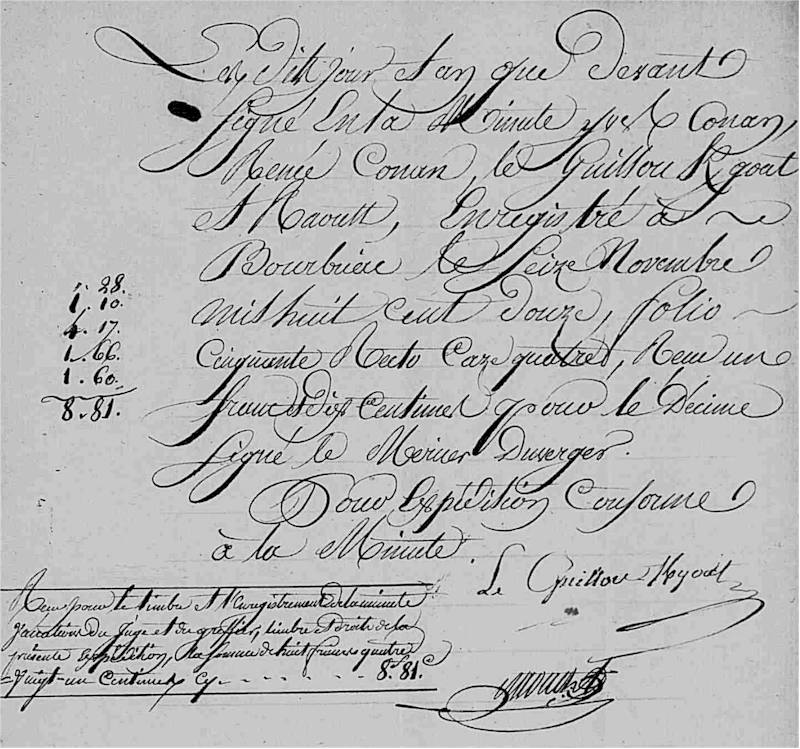 Les dits jour et an que devant
signé En la Minute yves Conan,
Renée Conan, le Guillou Kgoat
et Raoult, Enregistré à
Bourbriac le Seize Novembre
mil huit cent douze, folio
Cinquante Recto Caze quatre, Reçu un
franc et dix Centimes pour le Décime
signé le Mercier Duverger.
Pour Expédition Conforme
à la Minute.
Le Guillou Kgoat
1. 10.
4. 17.
1. 66.
1. 60.
8. 81.
Reçu pour le timbre et l'Enregistrement de la minute
Vacations du Juge et du greffier, timbre et droits de la
présente Expédition, la somme de huit francs quatre
Vingt-un Centimes Cy - - - - - - 8.f 81.c